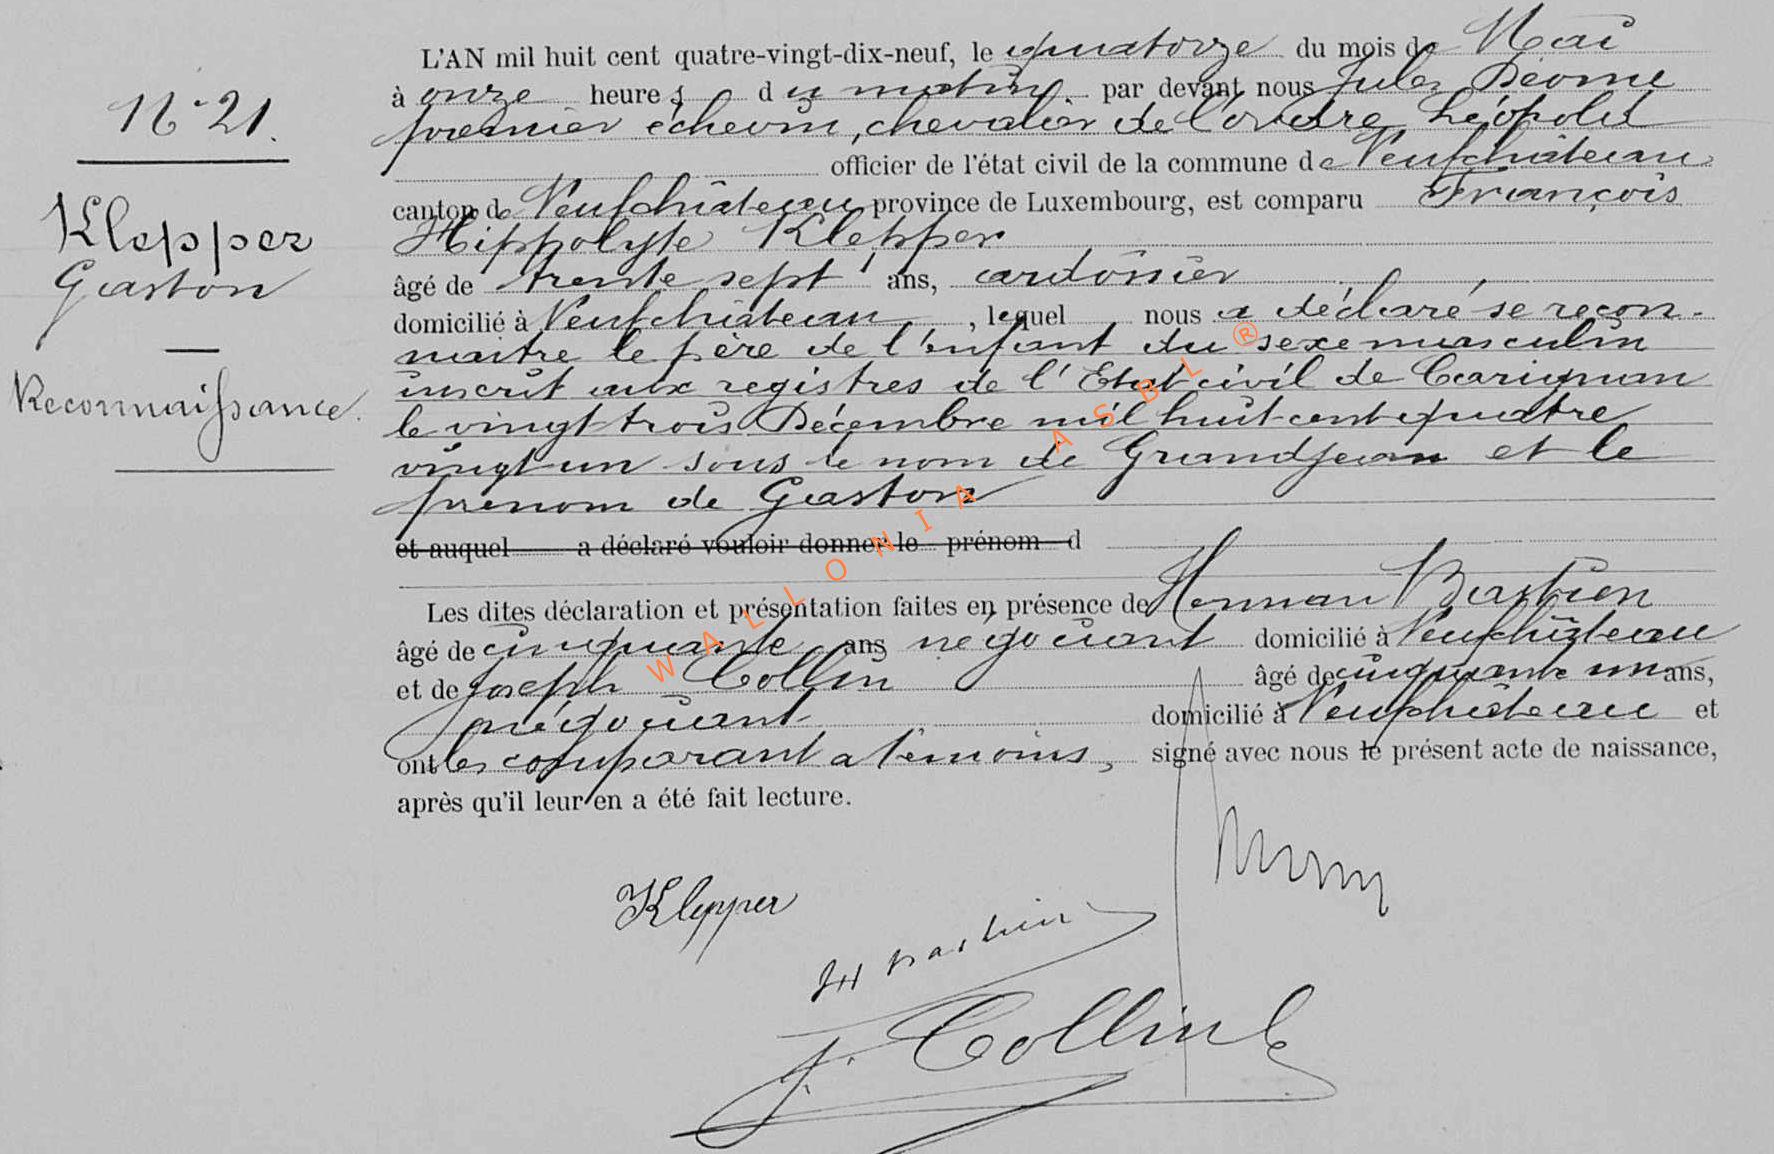 N° 21.
Klepper
Gaston
Reconnaissance.
L'AN mil huit cent quatre-vingt-dix-neuf, le quatorze du mois de Mai
à onze heures du matin, par devant nous Jules Déome
premier échevin, chevalier de l'ordre Léopold
officier de l'état civil de la commune de Neufchâteau
canton de Neufchâteau province de Luxembourg, est comparu François
Hippolyte Klepper
âgé de trente sept ans, cardonier
domicilié à Neufchâteau, lequel nous a déclaré se recon-
naitre le père de l'enfant du sexe masculin
inscrit aux registres de l'Etat civil de Carignan
le vingt trois Décembre mil huit cent quatre
vingt un sous le nom de Grandjean et le
prenom de Gaston
et auquel a déclaré vouloir donner le prénom d
Les dites déclaration et présentation faites en présence de Herman Bastien
âgé de cinquante ans négociant domicilié à Neufchâteau
et de Joseph Collin âgé de cinquante un ans,
négociant domicilié à Neufchâteau et
ont les comparant a témoins, signé avec nous le présent acte de naissance,
après qu'il leur en a été fait lecture.
Klepper
H Bastien
J. Collin
WALLONIA ASBL ®